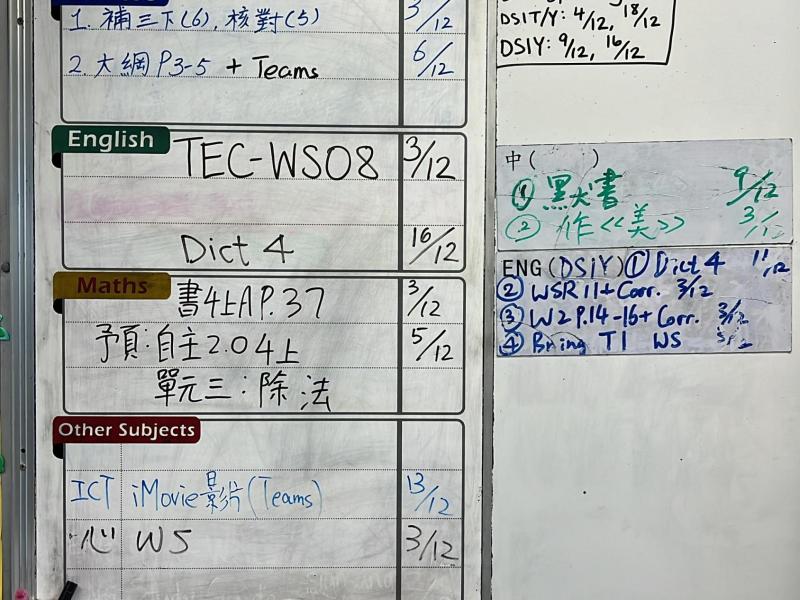 1. 補三下(6), 核對(5) 3/12
2. 大綱 P3-5 + Teams 6/12
English
TEC-WS08 3/12
Dict 4 16/12
Maths
書4上A P.37 3/12
予頁:自主2.0 4上 5/12
單元三:除法
Other Subjects
ICT iMovie影片(Teams) 13/12
心 W5 3/12
DSIT/Y: 4/12, 18/12
DSIY: 9/12, 16/12
中( )
① 黑犬書 9/12
② 作<<美>> 3/12
ENG (DSIY) ① Dict 4 11/12
② WSR 11 + Corr. 3/12
③ W2 P.14-16 + Corr. 3/12
④ Bring T1 WS